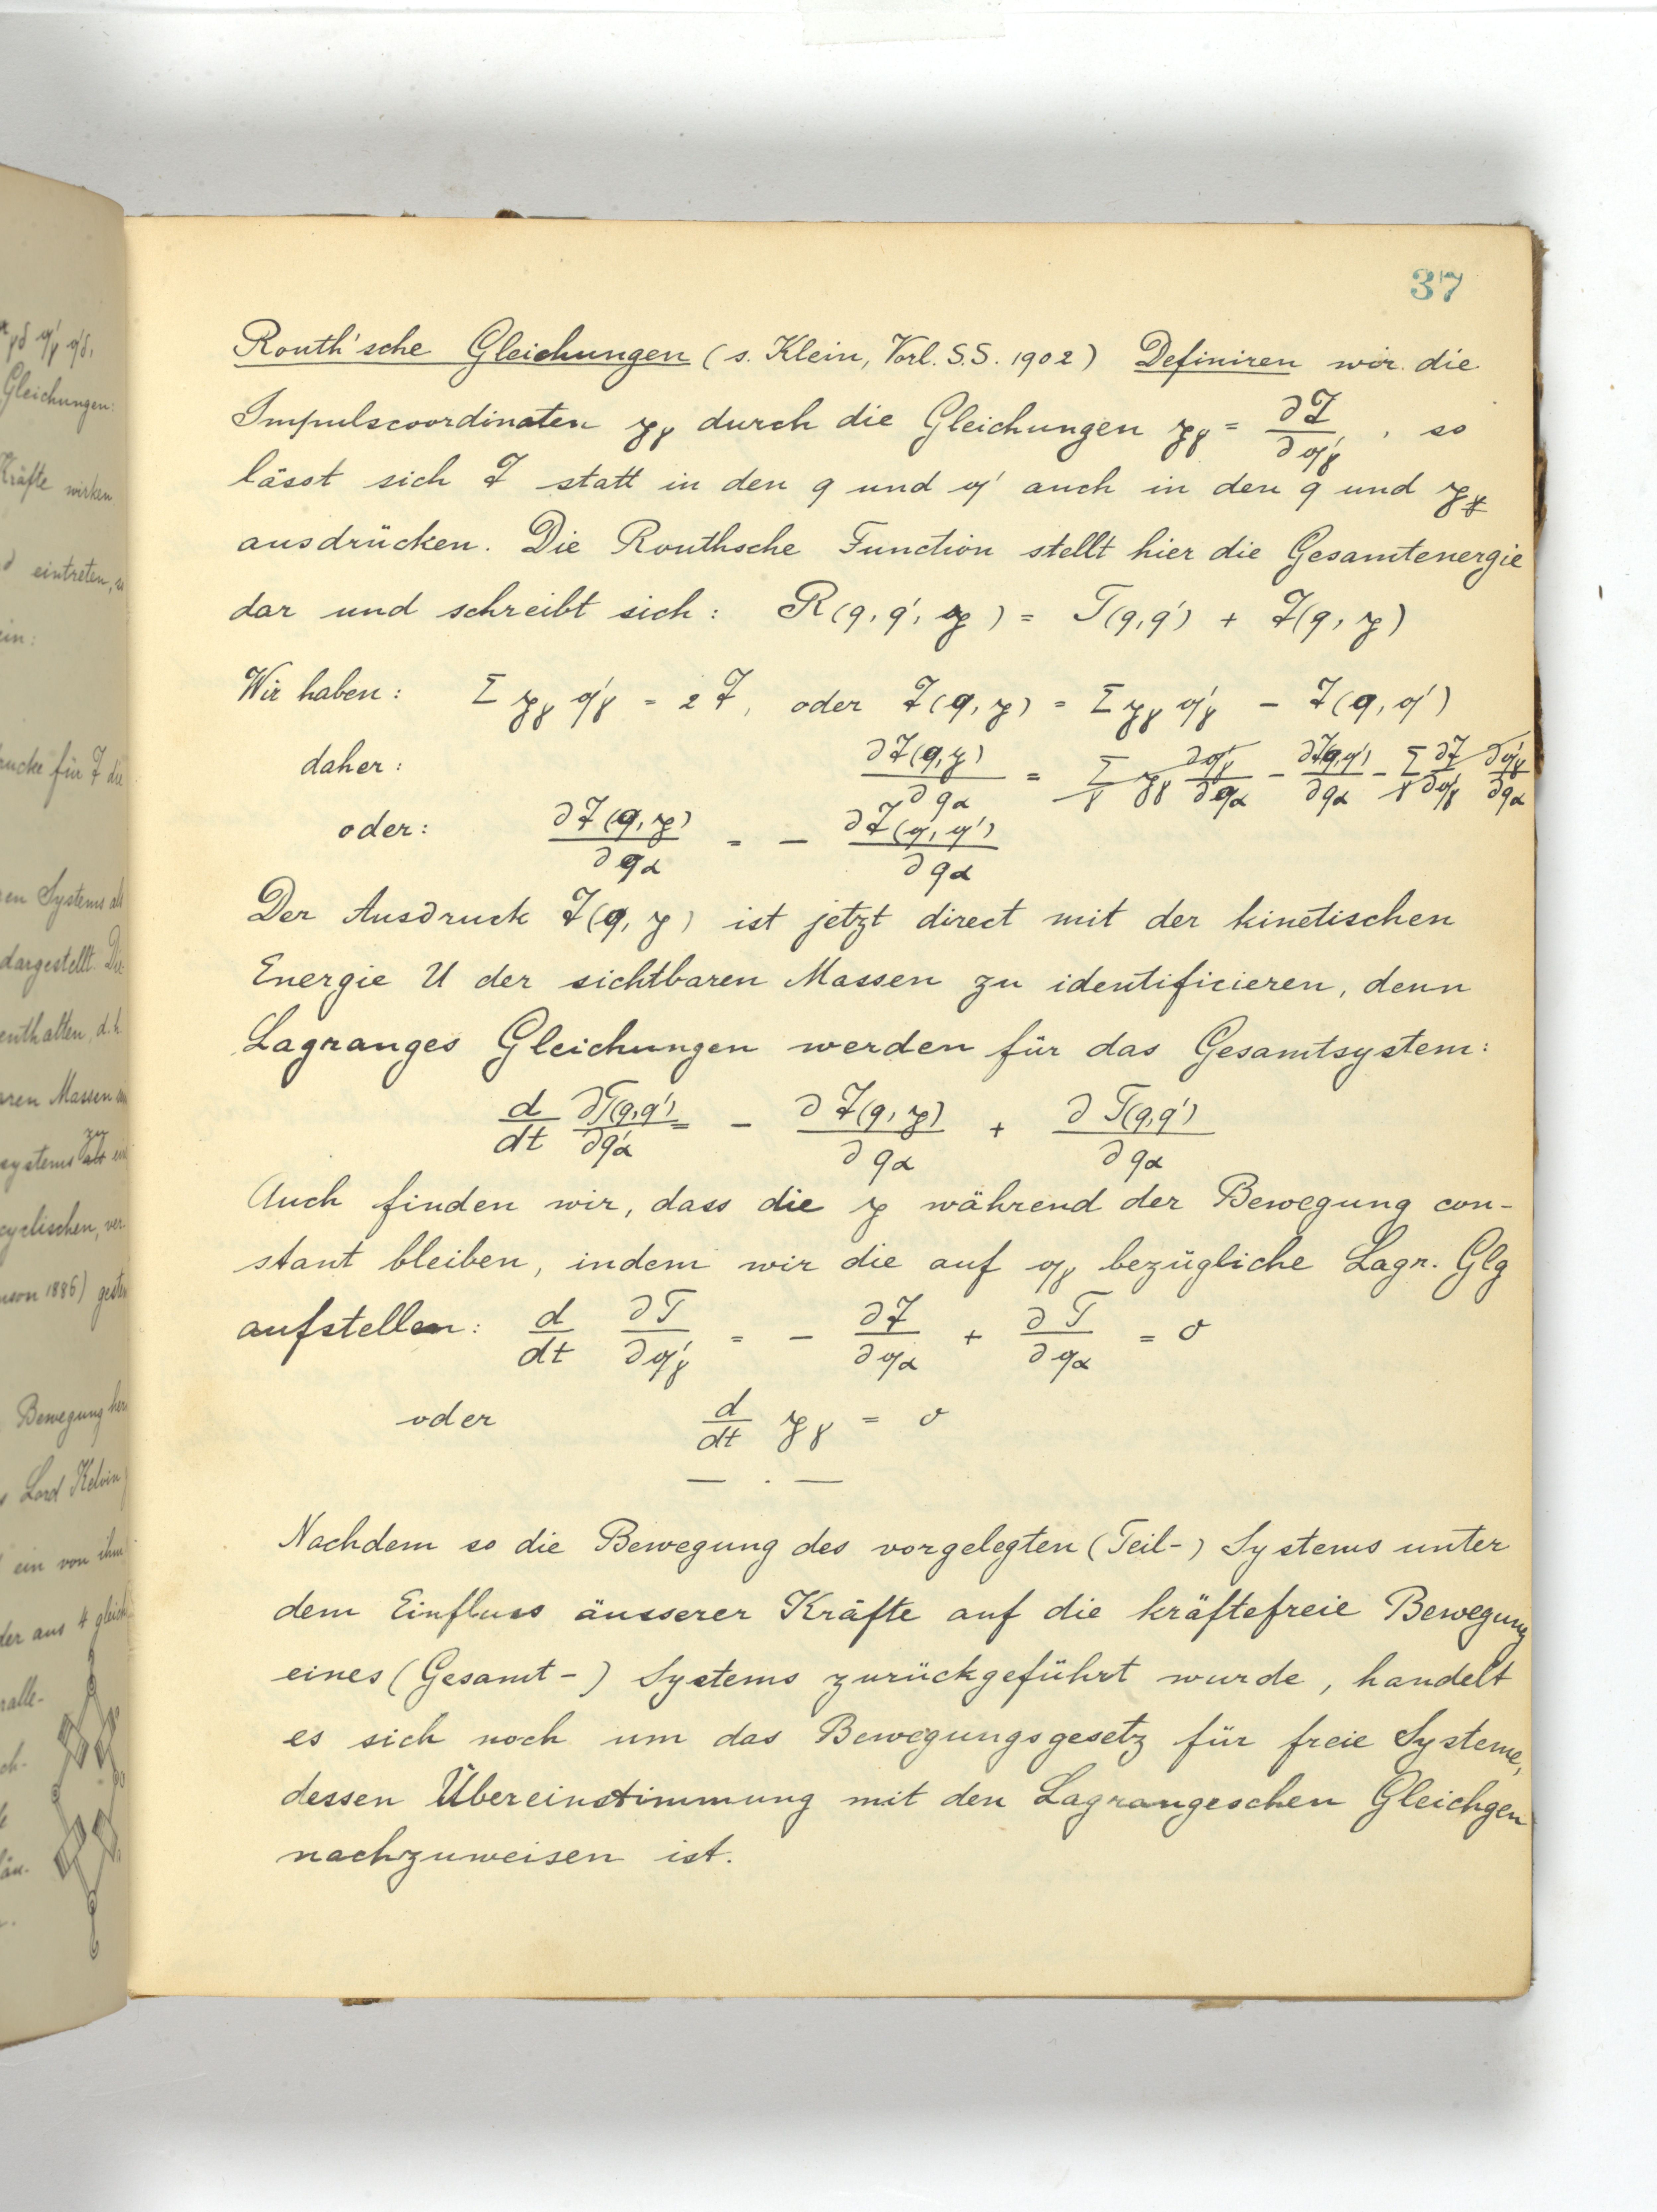 37
Routh'sche Gleichungen (s. Klein, Vorl. S.S. 1902) Definiren wir die
Impulscoordinaten 𝔭γ durch die Gleichungen 𝔭γ = ∂𝔗/∂𝔮'γ, so
lässt sich 𝔗 statt in den q und 𝔮' auch in den q und 𝔭γ
ausdrücken. Die Routhsche Function stellt hier die Gesamtenergie
dar und schreibt sich: R(q, q', 𝔭) = T(q,q') + 𝔗(q, 𝔭)
Wir haben: Σ 𝔭γ 𝔮'γ = 2 𝔗, oder 𝔗(q, 𝔭) = Σ 𝔭γ 𝔮'γ − 𝔗(q, 𝔮')
daher: ∂𝔗(q,𝔭)/∂qα = Σγ 𝔭γ ∂𝔮'γ/∂qα − ∂𝔗(q,𝔮')/∂qα − Σγ ∂𝔗/∂𝔮'γ ∂𝔮'γ/∂qα
oder: ∂𝔗(q, 𝔭)/∂qα = − ∂𝔗(q, 𝔮')/∂qα
Der Ausdruck 𝔗(q, 𝔭) ist jetzt direct mit der kinetischen
Energie U der sichtbaren Massen zu identificieren, denn
Lagranges Gleichungen werden für das Gesamtsystem:
d/dt ∂T(q,q')/∂q'α = − ∂𝔗(q, 𝔭)/∂qα + ∂T(q,q')/∂qα
Auch finden wir, dass die 𝔭 während der Bewegung con-
stant bleiben, indem wir die auf 𝔮γ bezügliche Lagr. Glg
aufstellen: d/dt ∂T/∂𝔮'γ = − ∂𝔗/∂𝔮α + ∂T/∂𝔮α = 0
oder d/dt 𝔭γ = 0
— . —
Nachdem so die Bewegung des vorgelegten (Teil-) Systems unter
dem Einfluss äusserer Kräfte auf die kräftefreie Bewegung
eines (Gesamt-) Systems zurückgeführt wurde, handelt
es sich noch um das Bewegungsgesetz für freie Systeme,
dessen Übereinstimmung mit den Lagrangeschen Gleichgen
nachzuweisen ist.